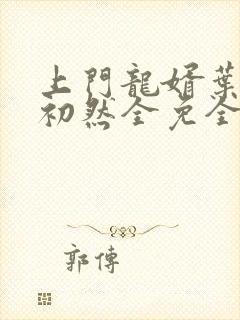 上門龍婿葉
初然全免全
郭傳